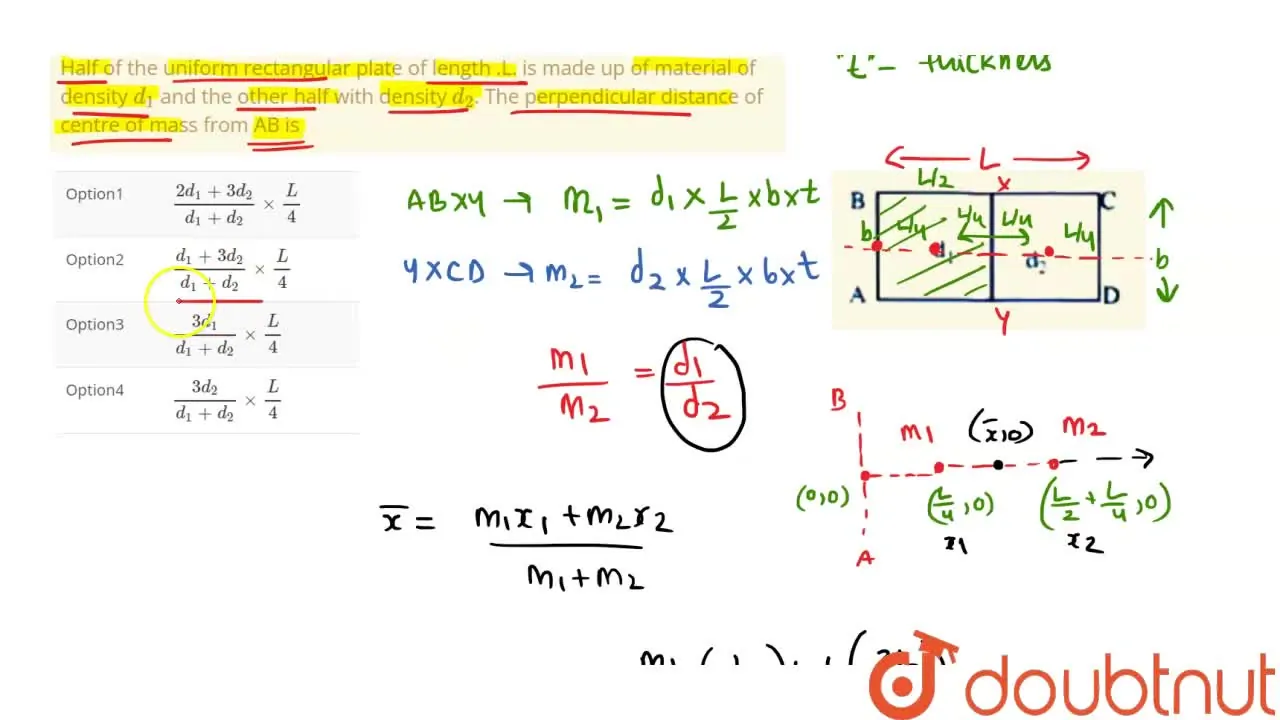 Half of the uniform rectangular plate of length .L. is made up of material of
density d₁ and the other half with density d₂. The perpendicular distance of
centre of mass from AB is
"t" – thickness
Option1 (2d₁ + 3d₂)/(d₁ + d₂) × L/4
Option2 (d₁ + 3d₂)/(d₁ + d₂) × L/4
Option3 3d₁/(d₁ + d₂) × L/4
Option4 3d₂/(d₁ + d₂) × L/4
ABXY → m₁ = d₁ × L/2 × b × t
YXCD → m₂ = d₂ × L/2 × b × t
m₁/m₂ = d₁/d₂
x̄ = (m₁x₁ + m₂x₂)/(m₁ + m₂)
L
L/2 X
B C
L/4 L/4 L/4 L/4
b d₁ d₂ b
A D
Y
B
m₁ (x̄,0) m₂
(0,0) (L/4,0) (L/2+L/4,0)
x₁ x₂
A
doubtnut